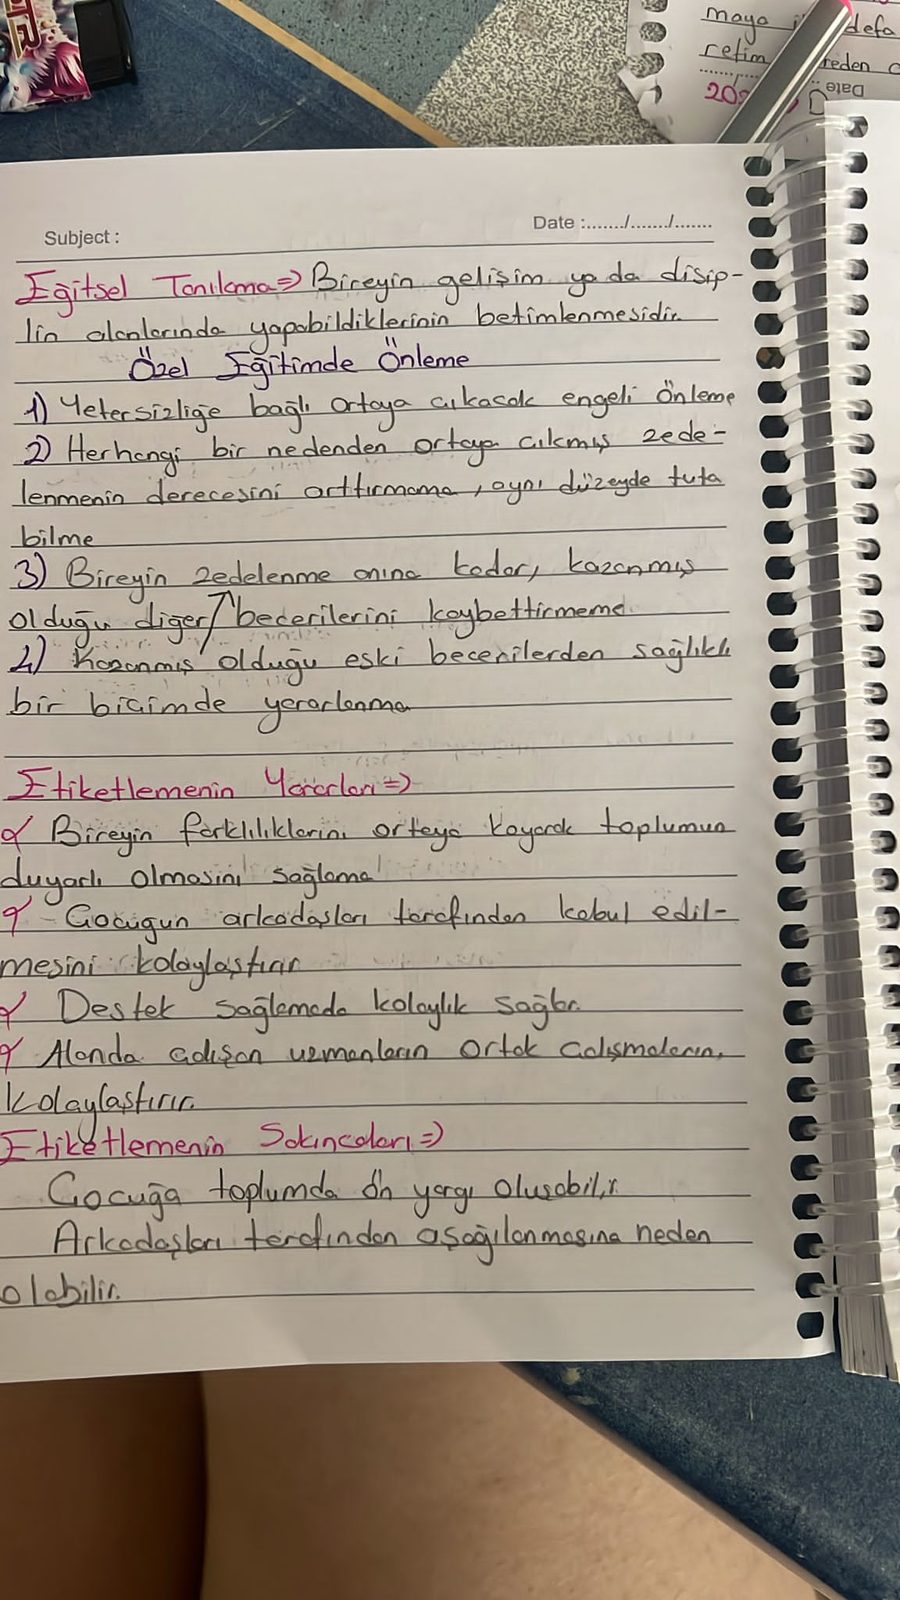 maya
defa
retim
reden
Date
Subject :
Date :......./......./.......
Eğitsel Tanılama => Bireyin gelişim ya da disip-
lin alanlarında yapabildiklerinin betimlenmesidir.
Özel Eğitimde Önleme
1) Yetersizliğe bağlı ortaya çıkacak engeli önleme
2) Herhangi bir nedenden ortaya çıkmış zede-
lenmenin derecesini arttırmama, aynı düzeyde tuta
bilme
3) Bireyin zedelenme anına kadar, kazanmış
olduğu diğer becerilerini kaybettirmeme
4) Kazanmış olduğu eski becerilerden sağlıklı
bir biçimde yararlanma
Etiketlemenin Yararları =>
Bireyin farklılıklarını ortaya koyarak toplumun
duyarlı olmasını sağlama
Çocuğun arkadaşları tarafından kabul edil-
mesini kolaylaştırır
Destek sağlamada kolaylık sağlar.
Alanda çalışan uzmanların ortak çalışmalarını
kolaylaştırır.
Etiketlemenin Sakıncaları =>
Çocuğa toplumda ön yargı oluşabilir.
Arkadaşları tarafından aşağılanmasına neden
olabilir.